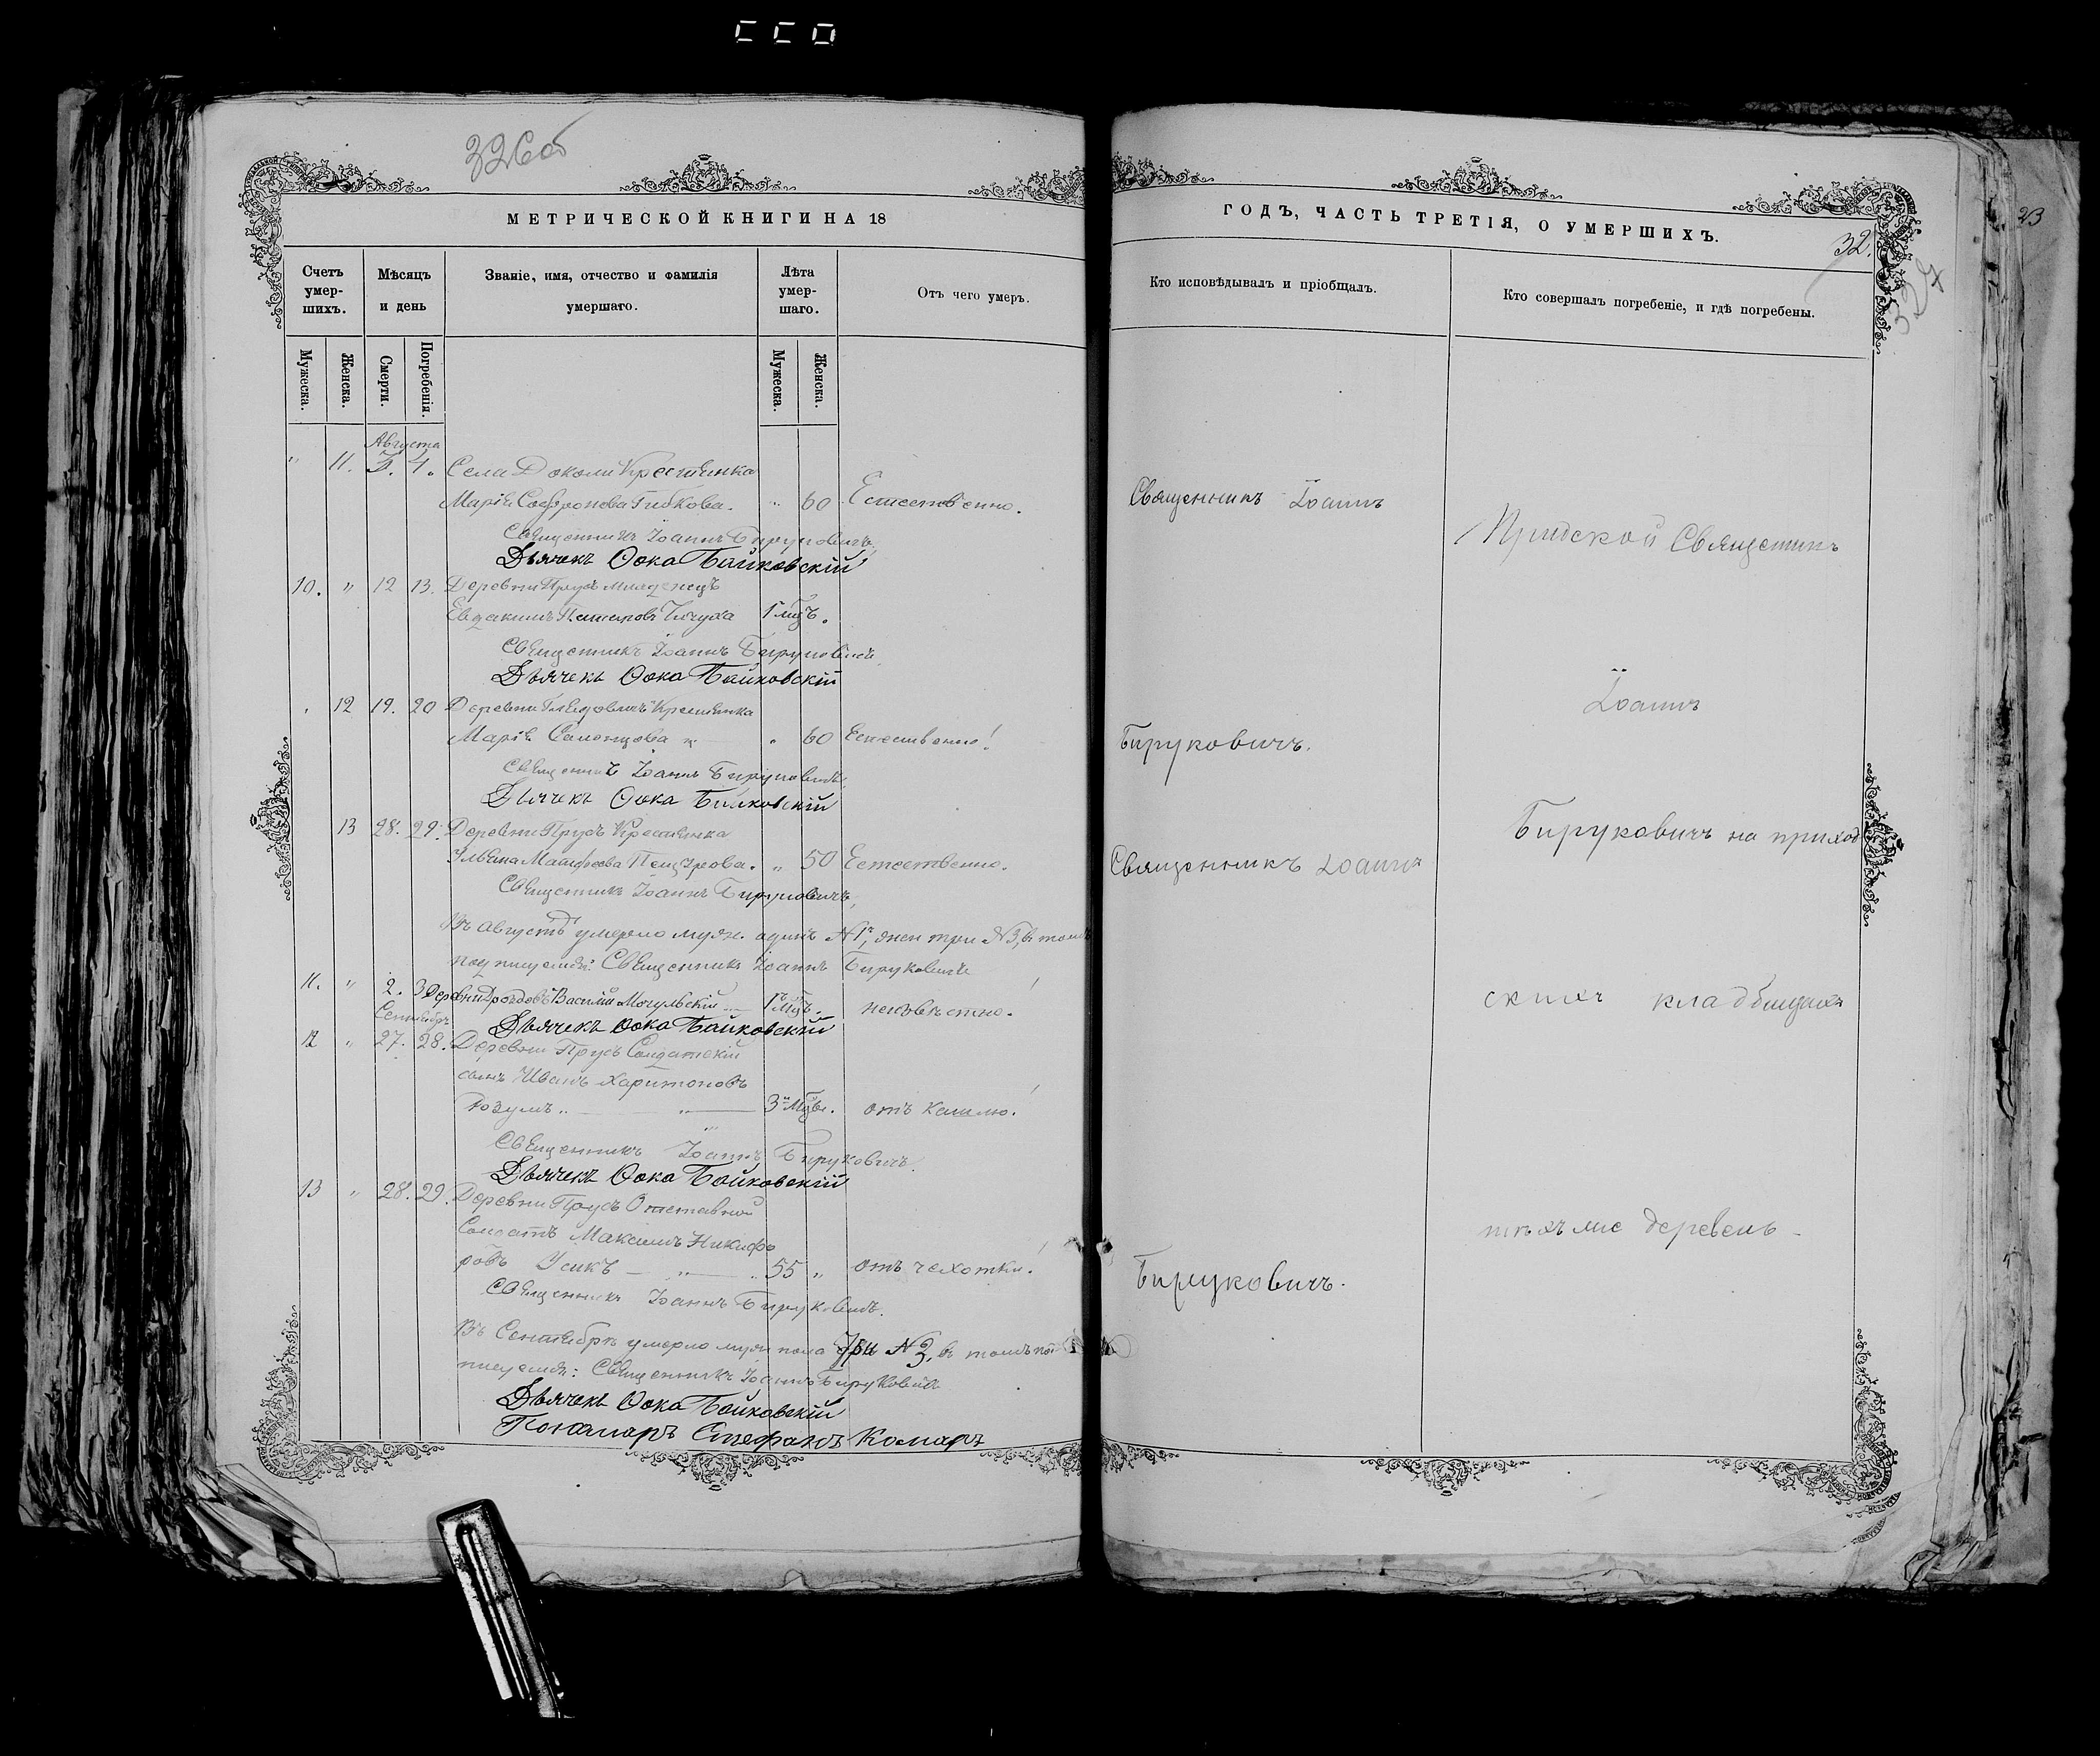 326об
МЕТРИЧЕСКОЙ КНИГИ НА 18
Счетъ умер-шихъ.
Мѣсяцъ и день
Званіе, имя, отчество и фамилія умершаго.
Лѣта умер-шаго.
Отъ чего умеръ.
Мужеска.
Женска.
Смерти.
Погребенія.
Мужеска.
Женска.
Августа
" 11. 3. 4. Села Доколи Крестьянка
Марія Софронова Гибкова. " 60 Естественно.
Священникъ Іоаннъ Бируковичъ,
Дьячекъ Ѳока Байковскій
10. " 12 13. Деревни Прусъ младенецъ
Евдакимъ 1 мцъ.
Священникъ Іоаннъ Бируковичъ.
Дьячекъ Ѳока Байковскій
12 19. 20 Деревни Крестьянка
Марія " 60 Естественно!
Священникъ Іоаннъ Бируковичъ.
Дьячекъ Ѳока Байковскій
13 28. 29. Деревни Прусъ Крестьянка
Ульяна " 50 Естественно.
Священникъ Іоаннъ Бируковичъ,
Въ Августѣ умерло муж. одинъ №1, жен три №3, въ томъ
подписуемся: Священникъ Іоаннъ Бируковичъ
11. " 2. 3 Деревни Дроздовъ Василій Могульскій 1 мцъ. неизвѣстно.
Сентября
Дьячекъ Ѳока Байковскій
12 " 27. 28. Деревни Прусъ Солдатскій
сынъ Иванъ Харитоновъ
Розумъ.. " 3 мцы. отъ кашлю!
Священникъ Іоаннъ Бируковичъ.
Дьячекъ Ѳока Байковскій
13 " 28. 29. Деревни Прусъ Отставной
Солдатъ Максимъ Никифо
ровъ Усикъ " 55 " отъ чахотки!
Священникъ Іоаннъ Бируковичъ.
Въ Сентябрѣ умерло муж пола Три №3. въ томъ под
писуемся: Священникъ Іоаннъ Бируковичъ
Дьячекъ Ѳока Байковскій
Пономаръ Стефанъ Комаръ
23
ГОДЪ, ЧАСТЬ ТРЕТІЯ, О УМЕРШИХЪ.
32.
327
Кто исповѣдывалъ и пріобщалъ.
Кто совершалъ погребеніе, и гдѣ погребены.
Священникъ Іоаннъ
Бируковичъ.
Священникъ Іоаннъ
Бируковичъ.
Священникъ
Іоаннъ
Бируковичъ на приход
скихъ кладбищахъ
тѣхъ же деревень